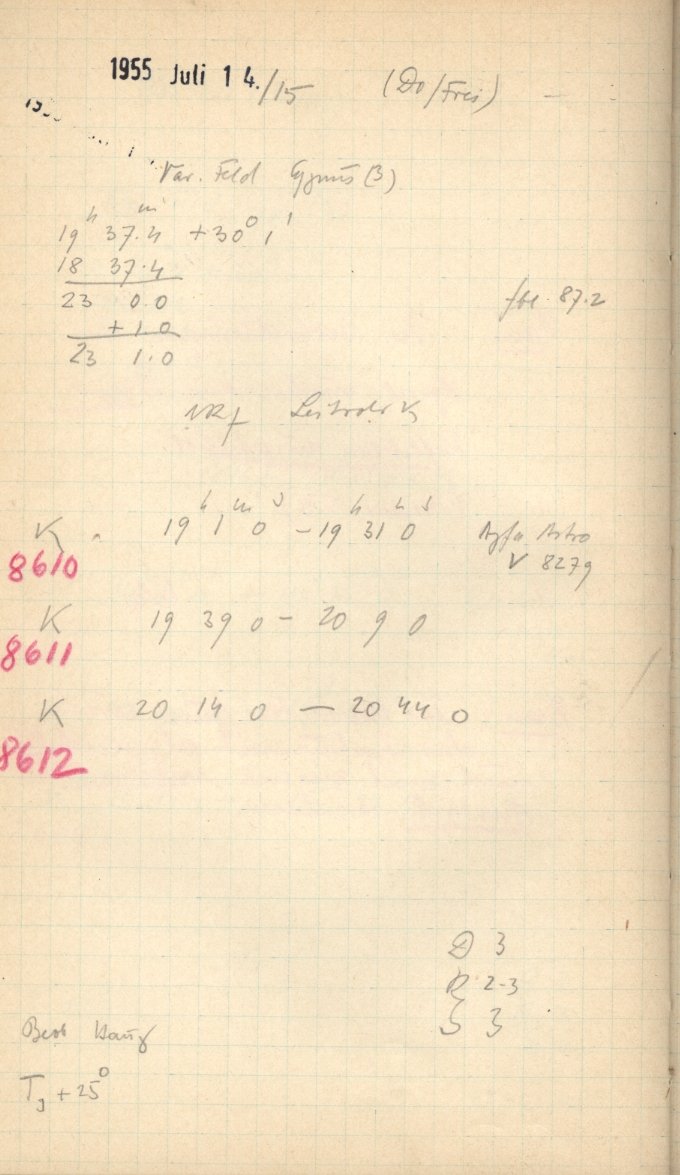 1955 Juli 14./15 (Do/Frei)
Var. Feld Cygnus (3)
19h 37.4m +30° 1'
18 37.4
23 0 0
+1.0
23 1.0
fbl. 87.2
K 19h 1m 0s - 19h 31 0s Agfa Astro
8610 V 8279
K 19 39 0 - 20 9 0
8611
K 20 14 0 — 20 44 0
8612
D 3
R 2-3
S 3
Beob
T +25°